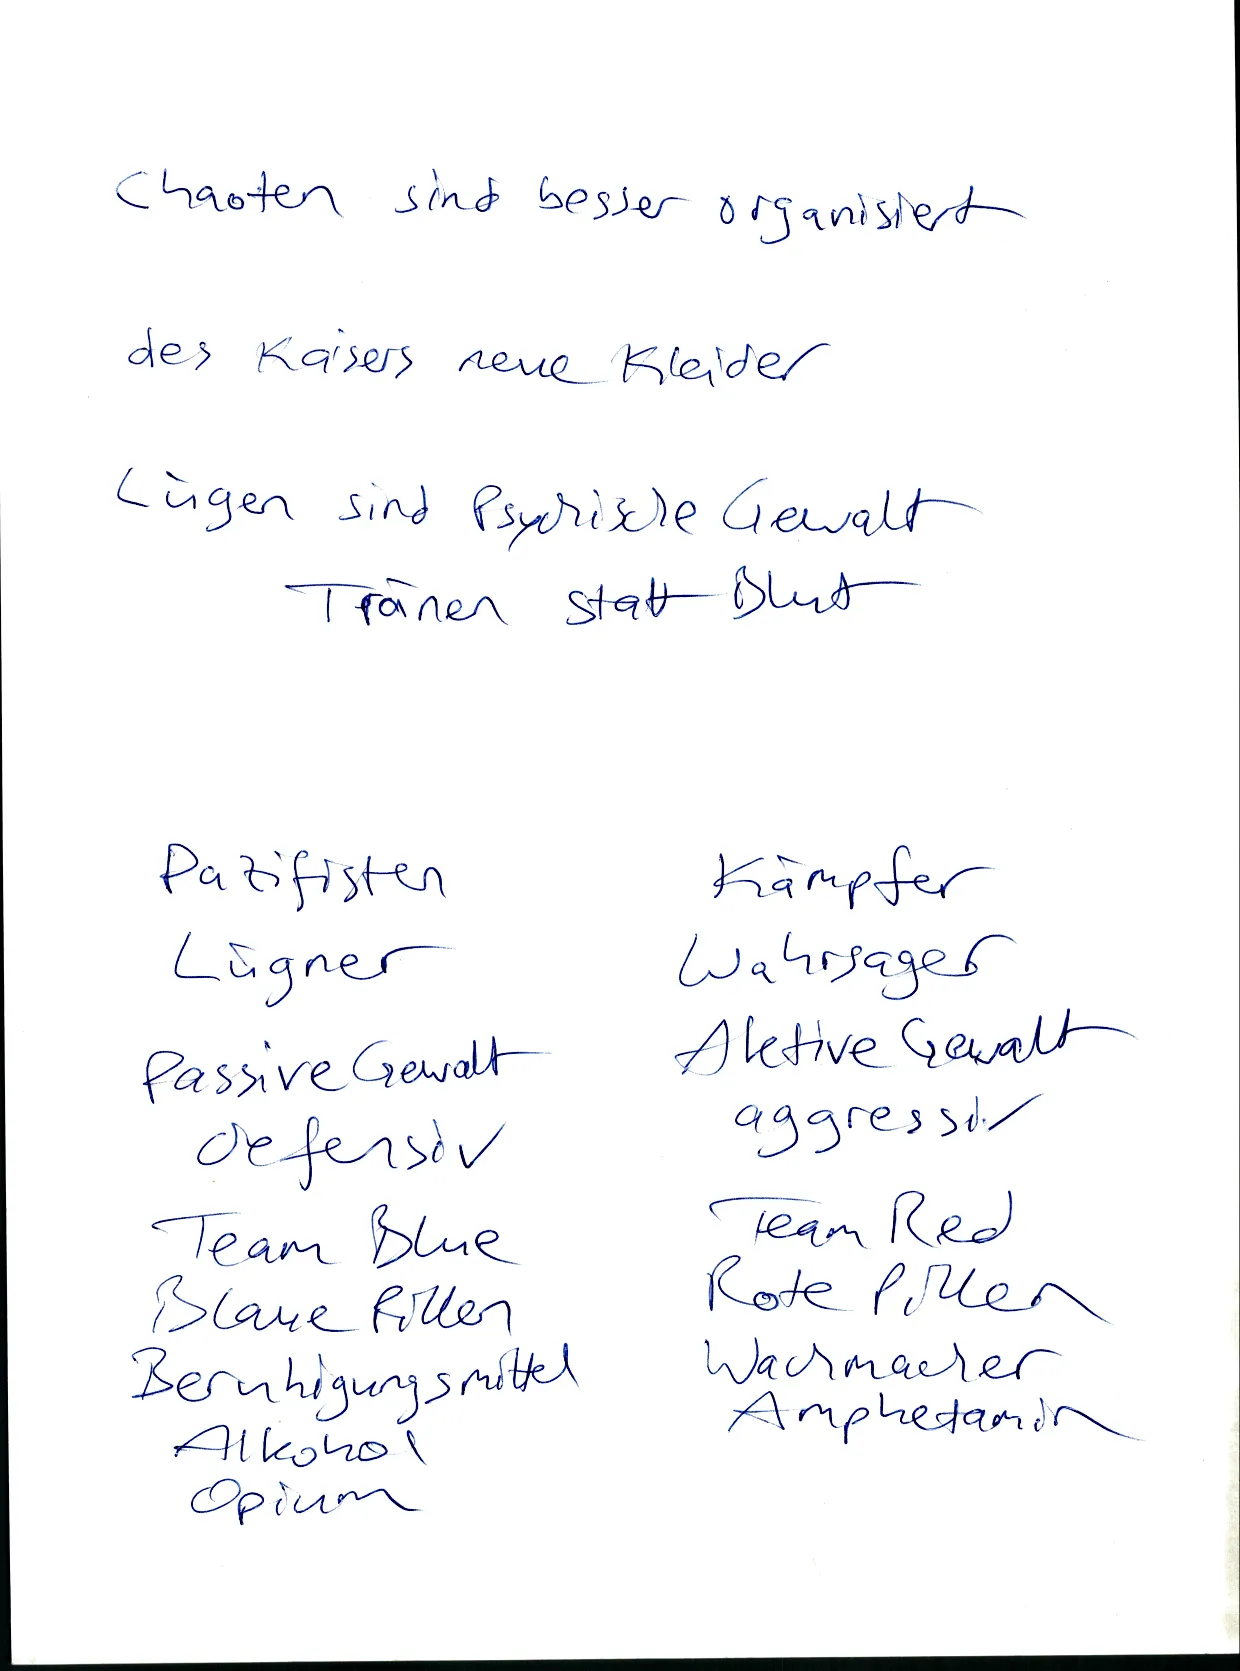 Chaoten sind besser organisiert
des Kaisers neue Kleider
Lügen sind Psychische Gewalt
Tränen statt Blut
Pazifisten
Lügner
Passive Gewalt
defensiv
Team Blue
Blaue Pillen
Beruhigungsmittel
Alkohol
Opium
Kämpfer
Wahrsager
Aktive Gewalt
aggressiv
Team Red
Rote Pillen
Wachmacher
Amphetamin